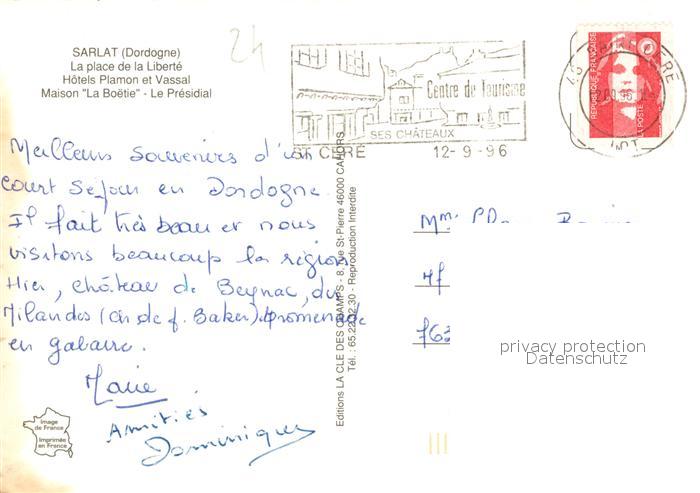 SARLAT (Dordogne)
La place de la Liberté
Hôtels Plamon et Vassal
Maison "La Boëtie" - Le Présidial
24
Centre de Tourisme
SES CHÂTEAUX
ST CERE 12-9-96
46 ST CERE
LOT
REPUBLIQUE FRANÇAISE
LA POSTE
Meilleurs souvenirs d'un
court séjour en Dordogne.
Il fait très beau et nous
visitons beaucoup la région
Hier, château de Beynac, des
Milandes (ch de J. Baker), promenade
en gabarre.
Marie
Amitiés
Dominique
Editions LA CLE DES CHAMPS - 8, rue St-Pierre 46000 CAHORS
Tél.: 65.22.02.30 - Reproduction Interdite
Mme
763
privacy protection
Datenschutz
Image
de France
Imprimée
en France